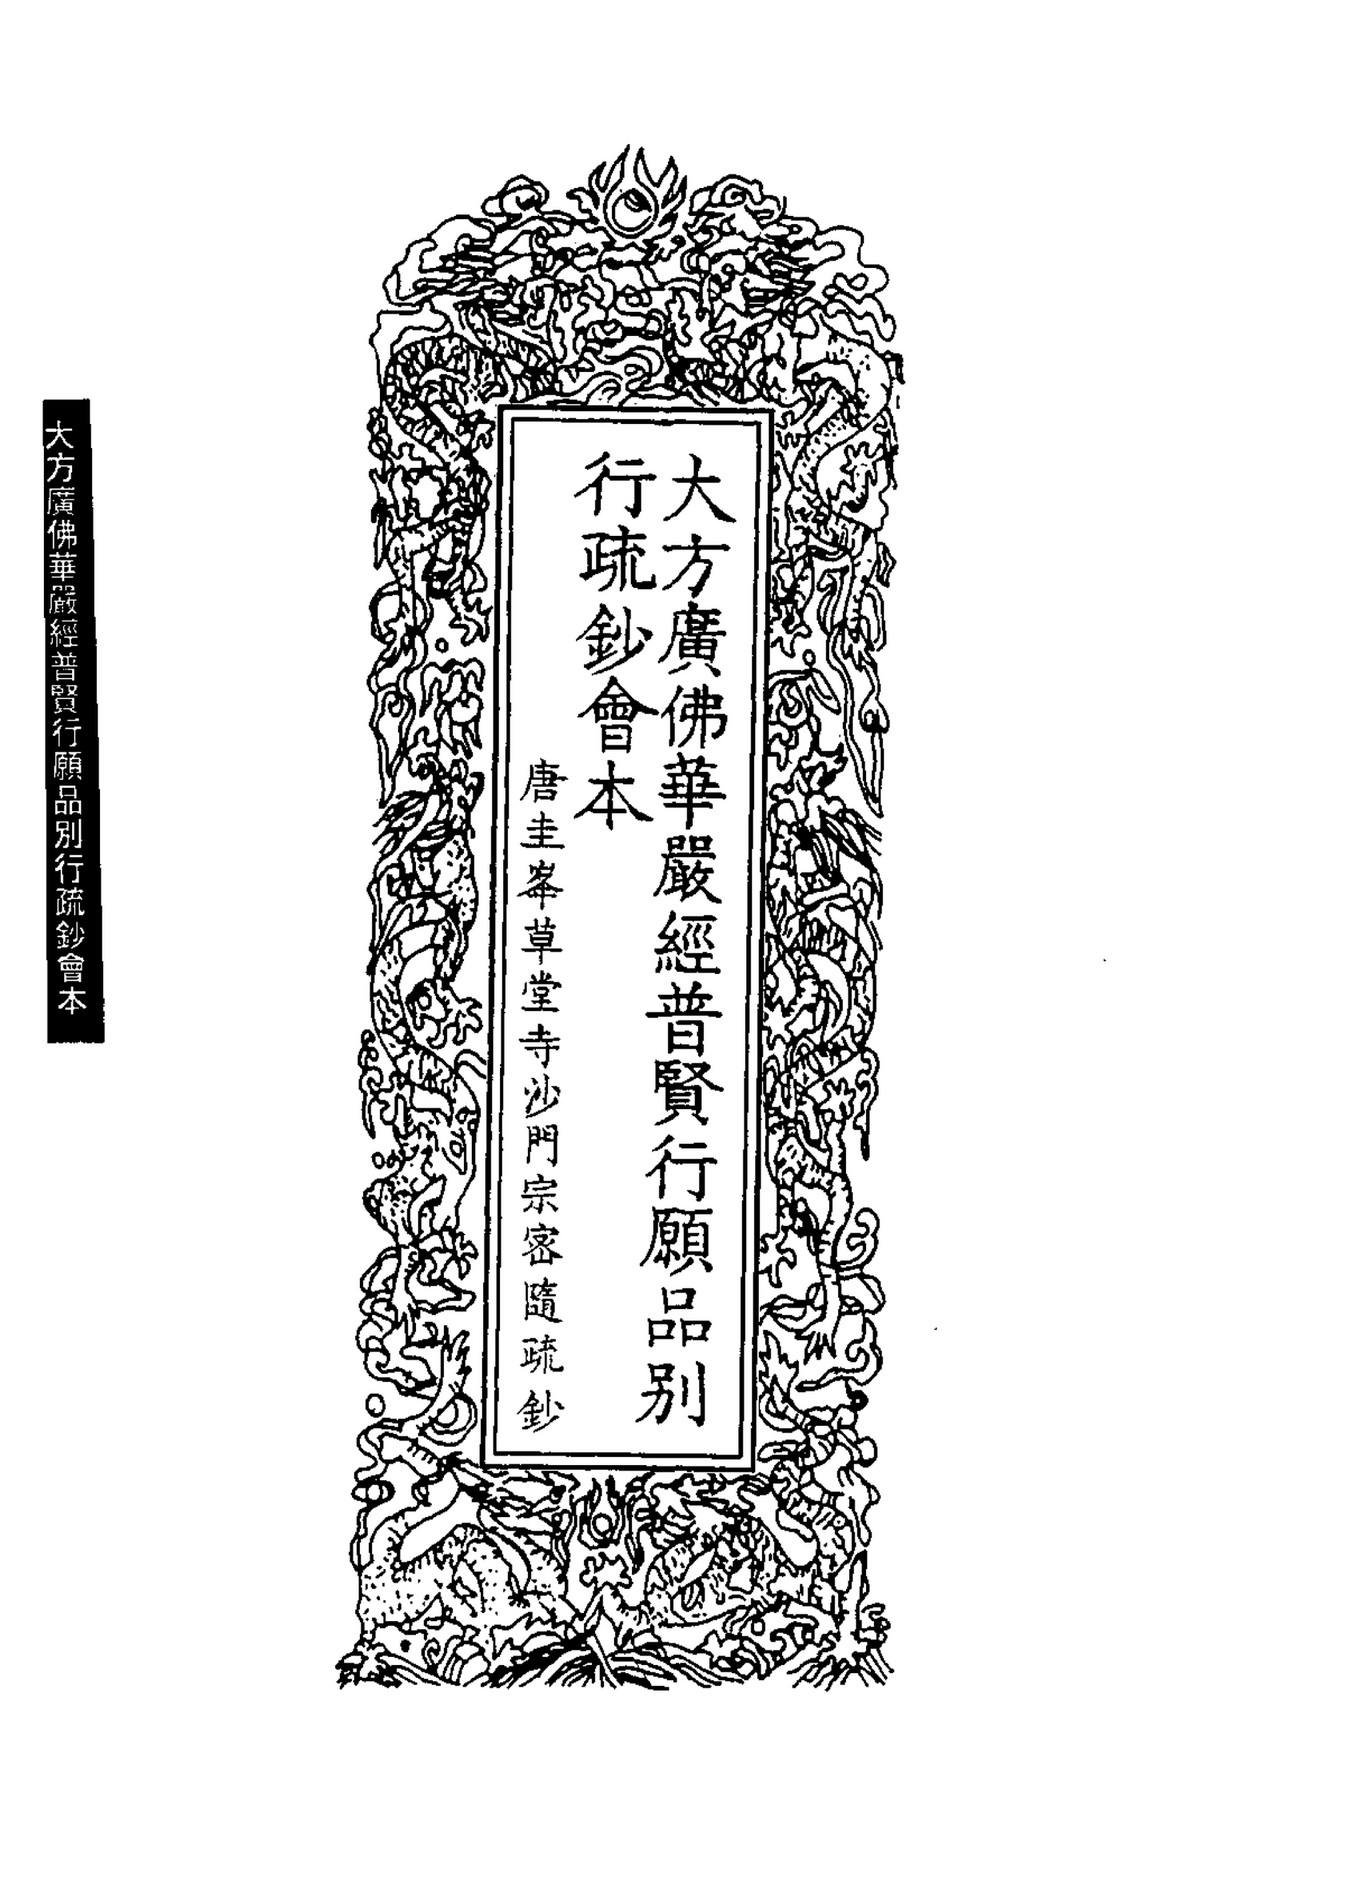 大方廣佛華嚴經普賢行願品別
行疏鈔會本
唐圭峯草堂寺沙門宗密隨疏鈔
大方廣佛華嚴經普賢行願品別行疏鈔會本